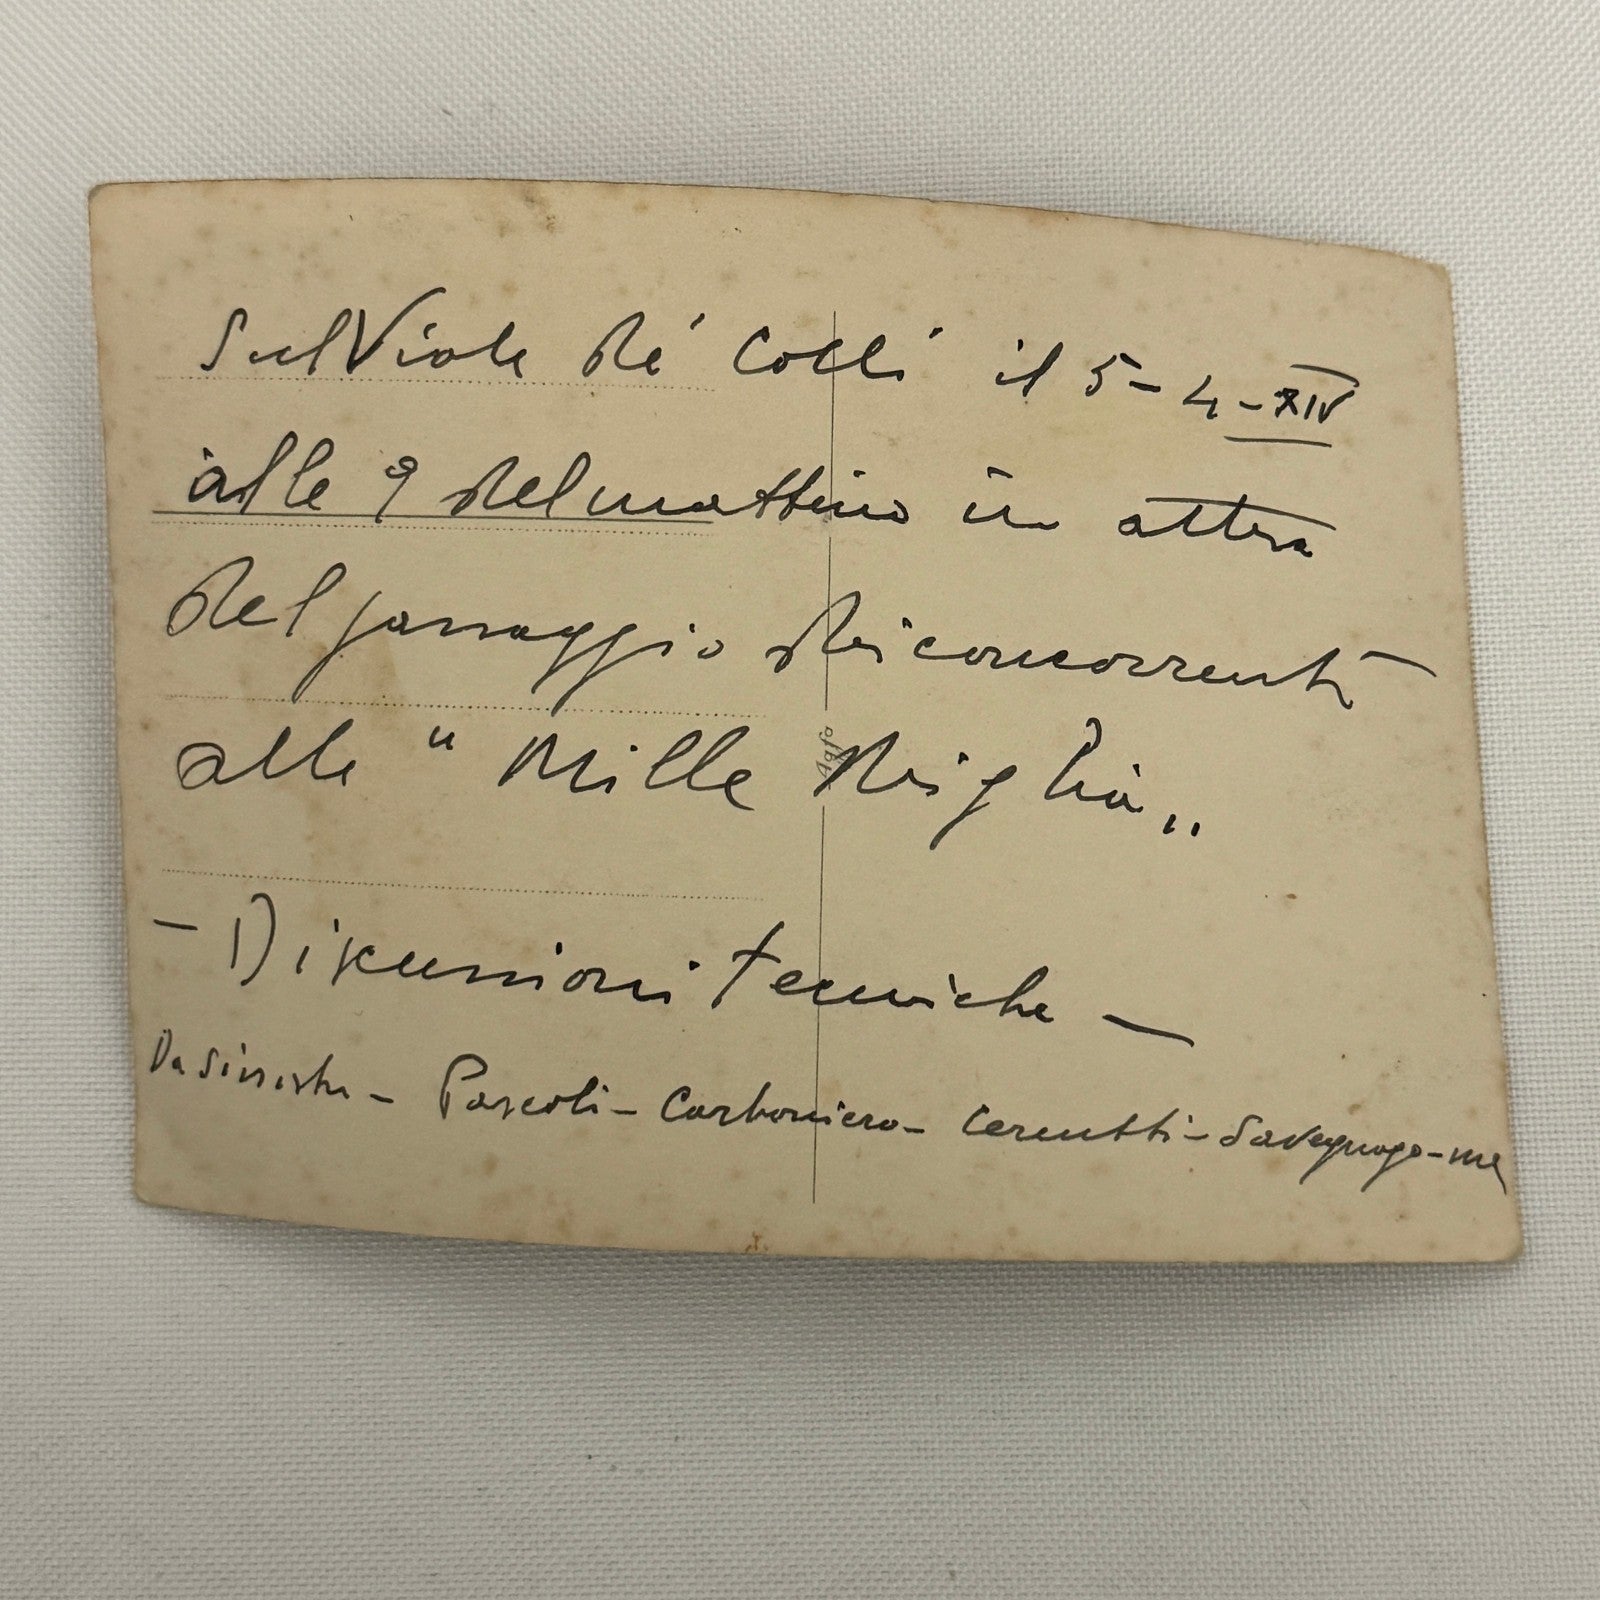 Sul Viale dè Colli il 5-4-XIV
alle 9 del mattino in attesa
del passaggio dei concorrenti
alle "Mille Miglia„
Agfa
- Discussioni tecniche -
Da sinistra - Pascoli - Carboniero - Cerutti - Savegnago - me